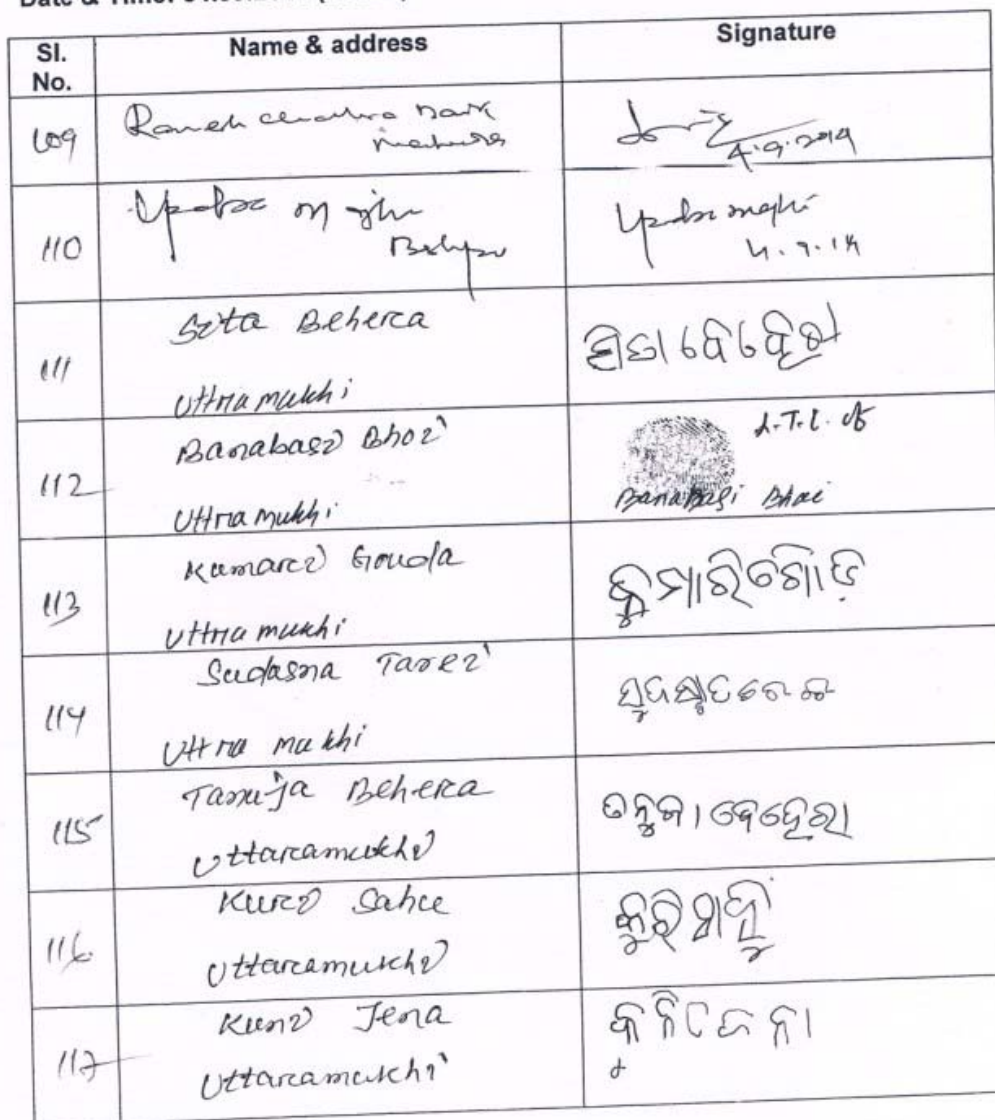 Sl. No.
Name & address
Signature
109
4.9.2014
110
4.9.14
111
Sita Behera
Uttramukhi
112
Banabasi Bhoi
Uttramukhi
L.T.I. of
Banabasi Bhoi
113
Kumari Gouda
Uttramukhi
କୁମାରି ଗୌଡ
114
Sudasna Tarei
Uttramukhi
115
Tanuja Behera
Uttaramukhi
ତନୁଜା ବେହେରା
116
Kuri Sahu
Uttaramukhi
କୁରି ସାହୁ
117
Kuni Jena
Uttaramukhi
କୁନି ଜେନା